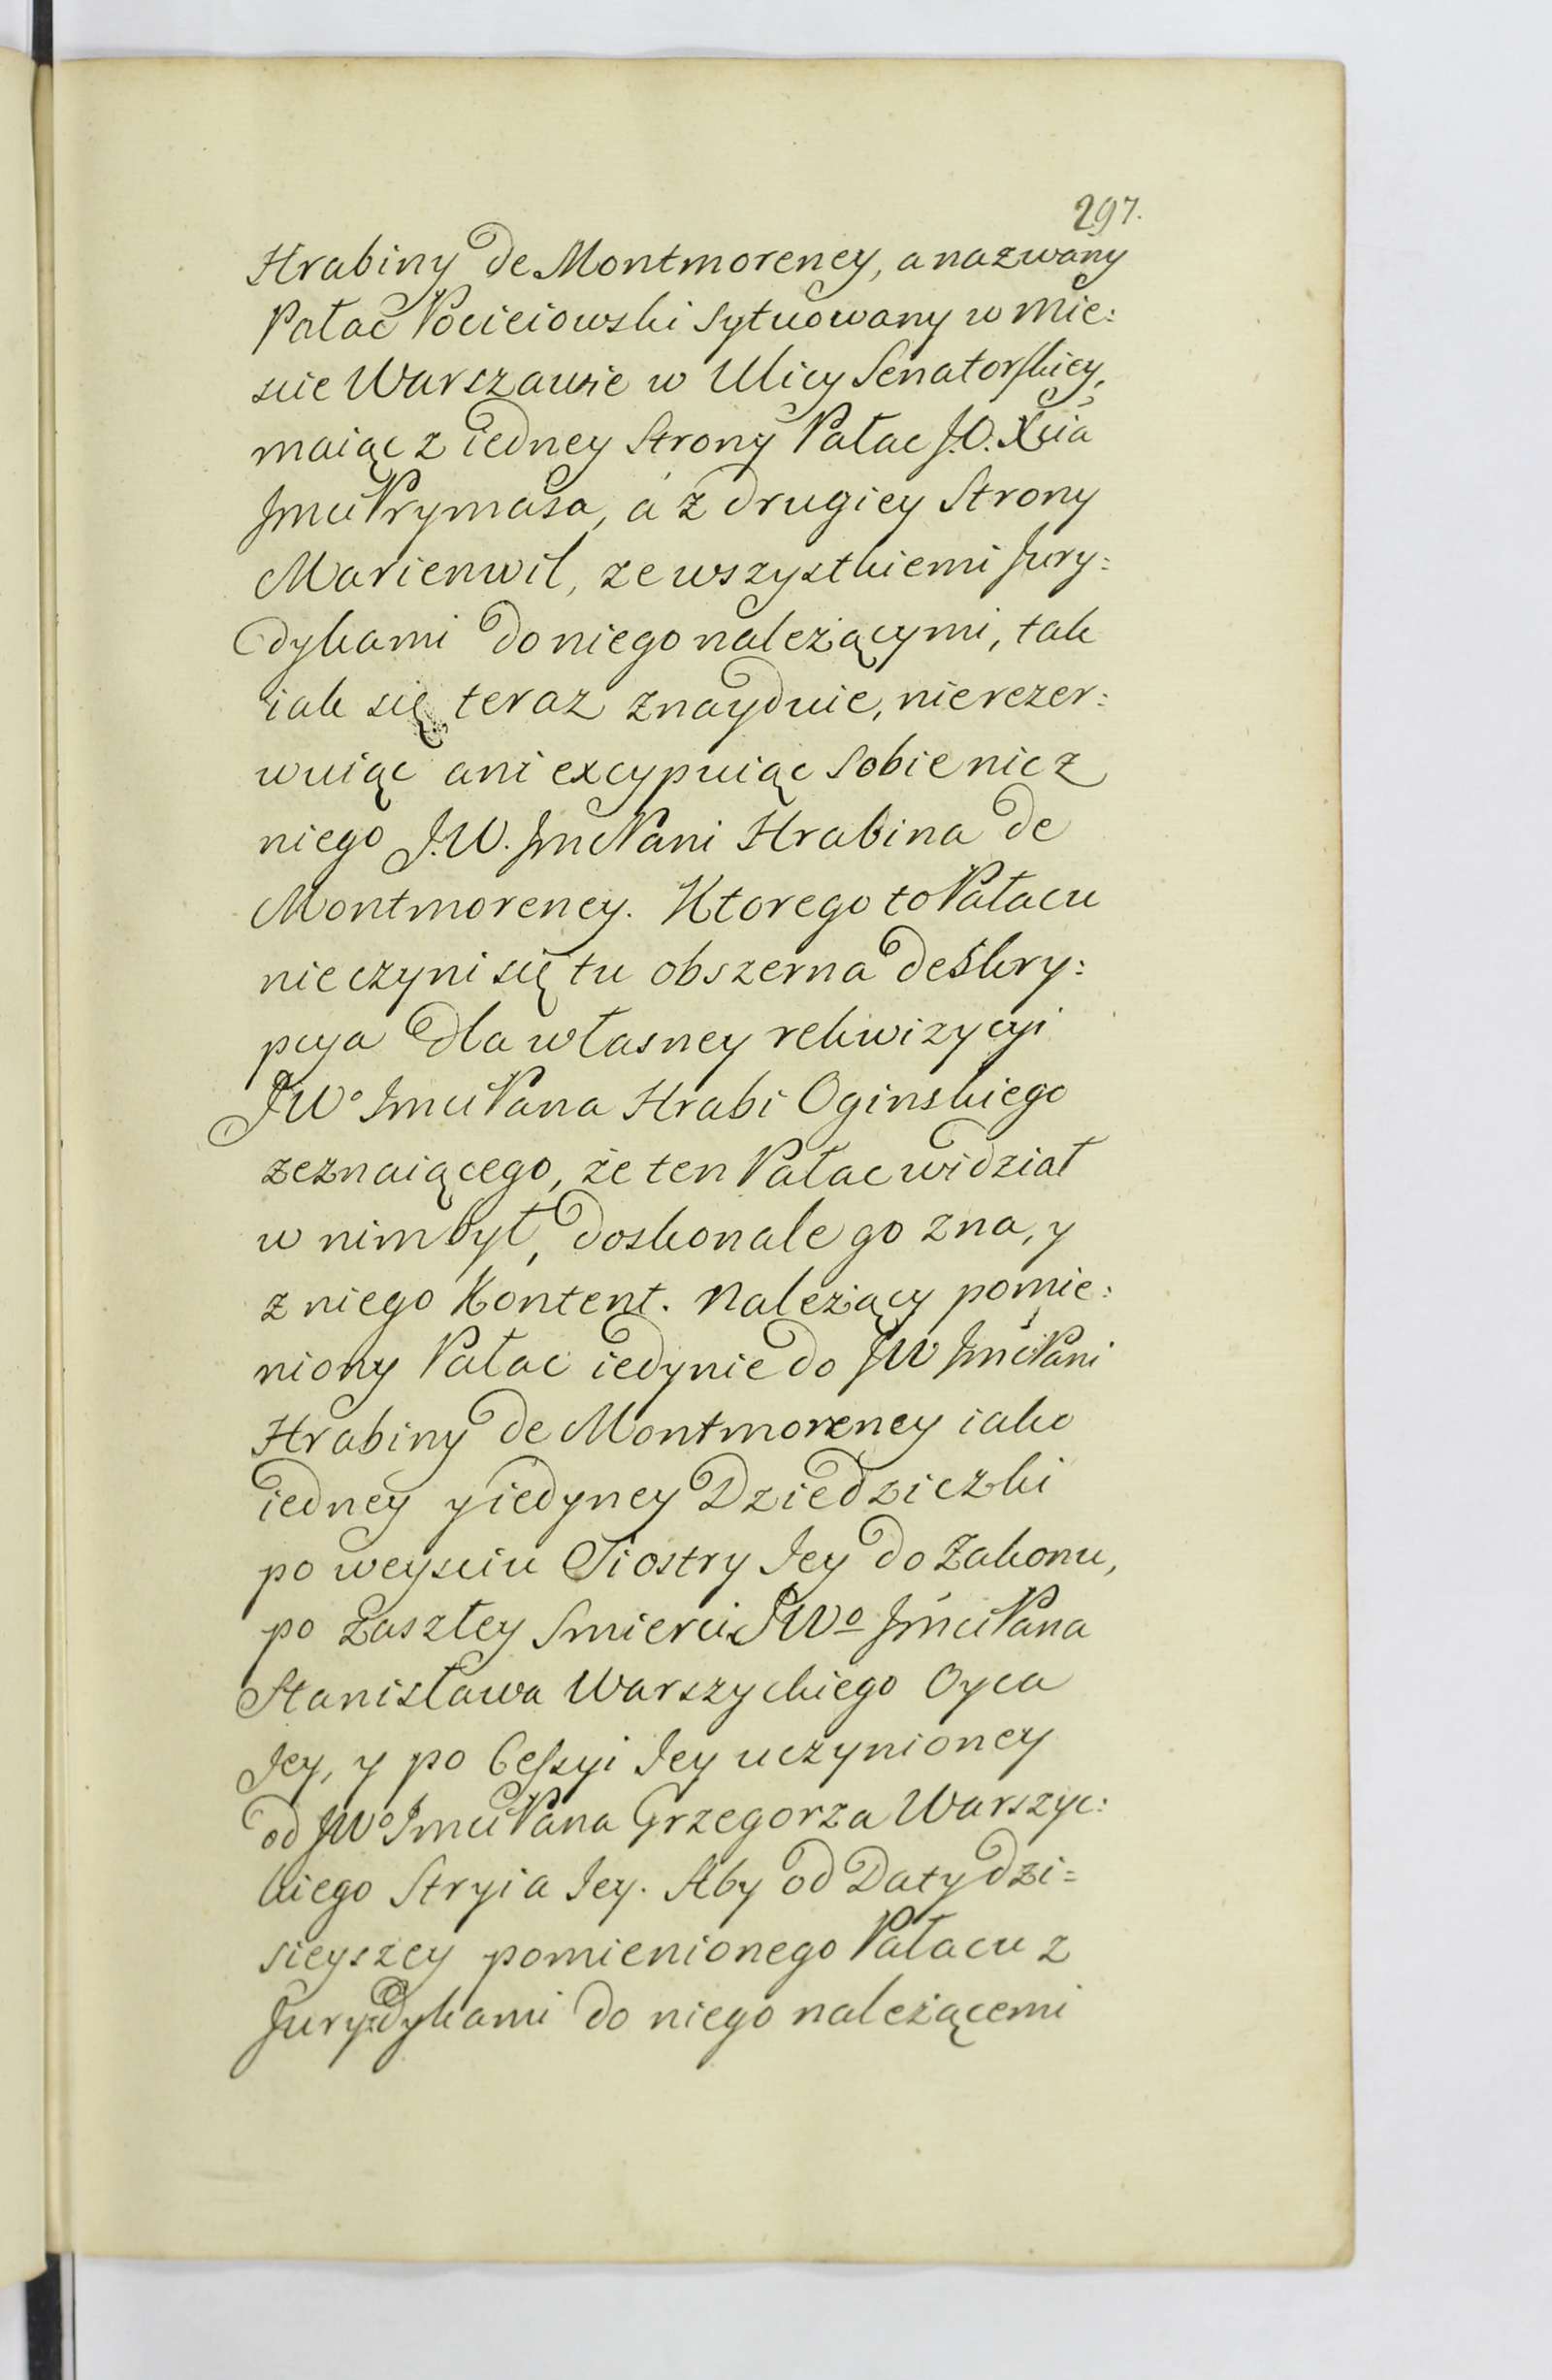 297.
Hrabiny de Montmorency, a nazwany
Pałac Pociciowski sytuowany w Mie:
scie Warszawie w Ulicy Senatorskiey,
maiąc z iedney Strony Pałac J.O. Xcia
Jmci Prymasa, a z drugiey Strony
Marienwil, ze wszystkiemi Jury:
dykami do niego należącymi, tak
iak się teraz znayduie, nierezer:
wuiąc ani excypuiąc sobie nic z
niego J.W. Jmc Pani Hrabina de
Montmorency. Ktorego to Pałacu
nie czyni się tu obszerna deskry:
pcya dla własney rekwizycyi
JWo Jmci Pana Hrabi Oginskiego
zeznaiącego, że ten Pałac widział
w nim był, doskonale go zna, y
z niego Kontent. Należący pomie:
niony Pałac iedynie do JW Jmc Pani
Hrabiny de Montmorency iako
iedney y iedyney Dziedziczki
po weysciu Siostry Jey do Zakonu,
po zaszłey Smierci JWo Jmci Pana
Stanisława Warszyckiego Oyca
Jey, y po Cessyi Jey uczynioney
od JWo Jmci Pana Grzegorza Warszyc:
kiego Stryia Jey. Aby od Daty dzi=
sieyszey pomienionego Pałacu z
Jurydykami do niego należącemi